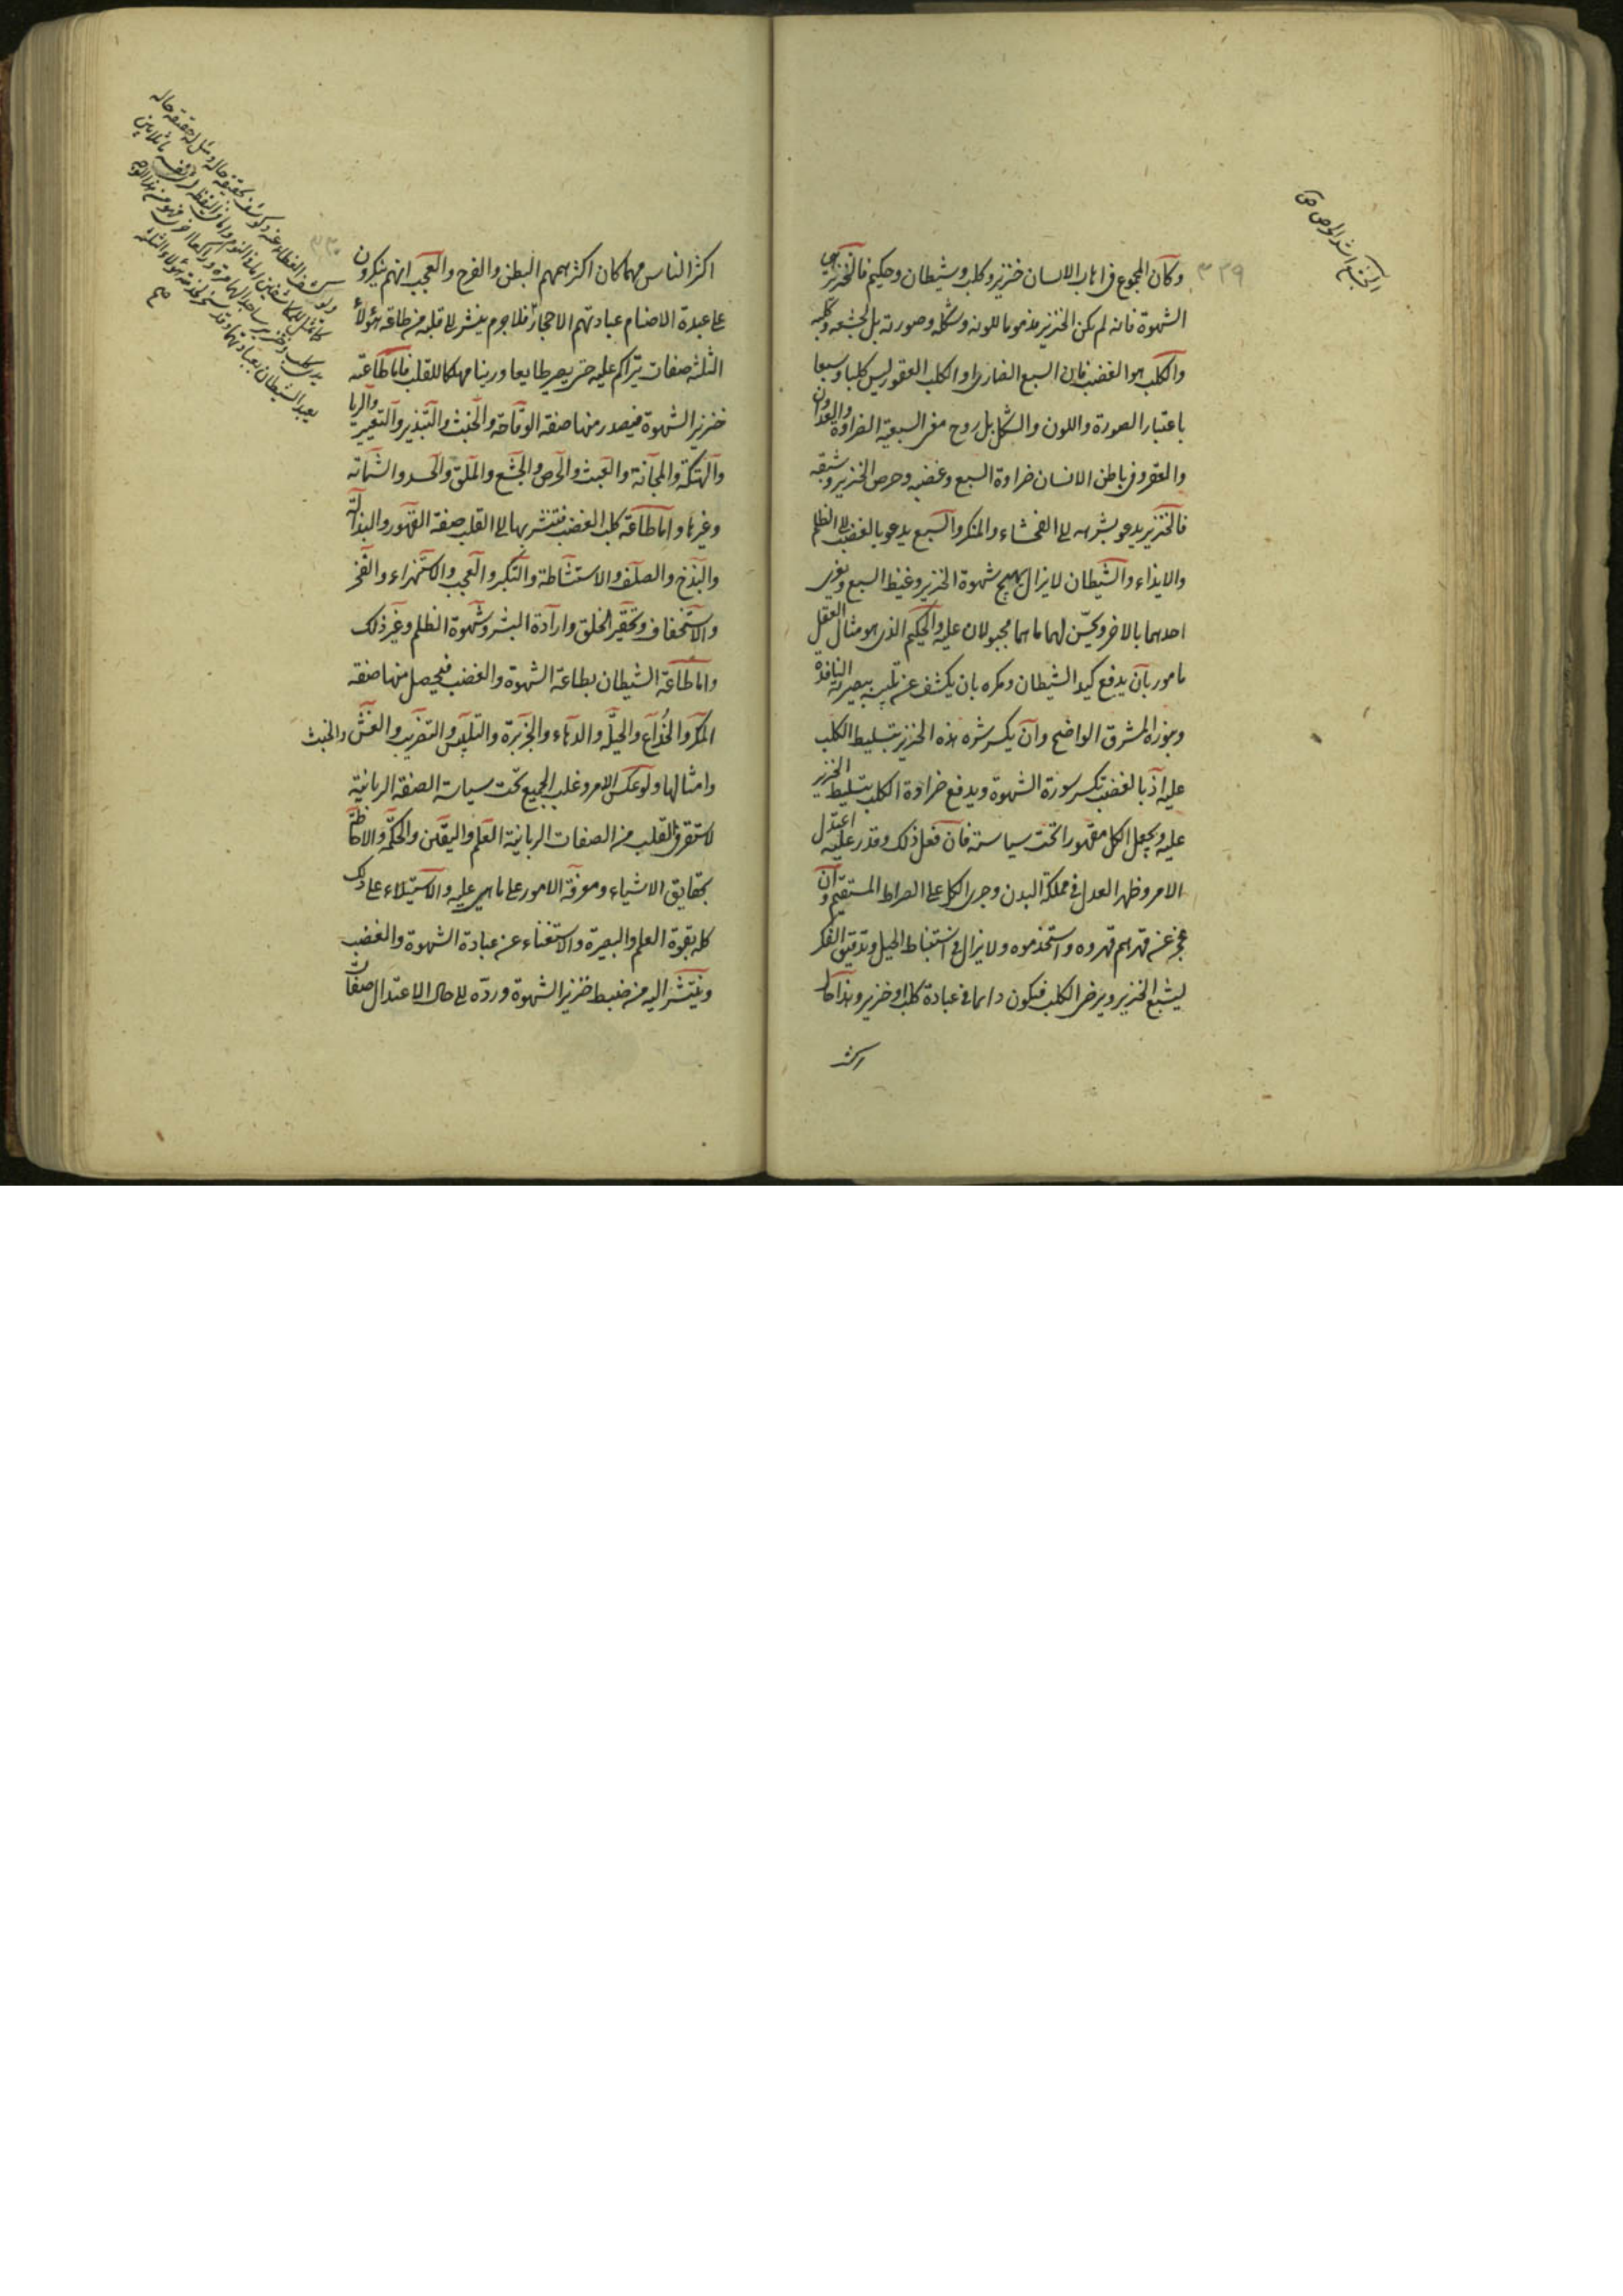 ٣٣٩
الجشع اشد الحرص ص
وكان المجموع في اهاب الانسان خنزير وكلب وشيطان وحكيم فالخنزير هي
الشهوة فانه لم يكن الخنزير مذموما للونه وشكله وصورته بل لجشعه وكلبه
والكلب هو الغضب فان السبع الضاري او الكلب العقور ليس كلبا وسبعا
باعتبار الصورة واللون والشكل بل روح معنى السبعية الضراوة والعدوان
والعقر وفي باطن الانسان ضراوة السبع وغضبه وحرص الخنزير وشبقه
فالخنزير يدعو بشرهه الى الفحشاء والمنكر والسبع يدعو بالغضب الى الظلم
والايذاء والشيطان لا يزال يهيج شهوة الخنزير وغيظ السبع ويغرى
احدهما بالاخر ويحسّن لهما ما هما مجبولان عليه والحكيم الذى هو مثال العقل
مامور بان يدفع كيد الشيطان ومكره بان يكشف عن تلبيسه ببصيرته النافذة
وبنوره المشرق الواضح وان يكسر شره هذه الخنزير بتسليط الكلب
عليه اذ بالغضب تكسر سورة الشهوة ويدفع ضراوة الكلب بتسليط الخنزير
عليه ويجعل الكل مقهورا تحت سياسته فان فعل ذلك وقدر عليه اعتدل
الامر وظهر العدل في مملكة البدن وجرى الكل على الصراط المستقيم وان
عجز عن قهرهم قهروه واستخدموه ولا يزال في استنباط الحيل وتدقيق الفكر
ليشبع الخنزير ويرضى الكلب فيكون دائما في عبادة كلب او خنزير وهذا حال
اكثر
٣٣٠
اكثر الناس مهما كان اكثر همهم البطن والفرج والعجب انهم ينكرون
على عبدة الاصنام عبادتهم الاحجار فلا جرم ينتشر الى قلبه من طاعة هؤلاء
الثلثة صفات يتراكم عليه حتى يصير طابعا ورينا مهلكا للقلب فاما طاعته
خنزير الشهوة فيصدر منها صفة الوقاحة والخبث والتبذير والتقتير والريا
والهتكة والمجانة والعبث والحرص والجشع والملق والحسد والشماتة
وغيرها واما طاعة كلب الغضب فتنتشر بها الى القلب صفة التهور والبذالة
والبذخ والصلف والاستشاطة والتكبر والعجب والاستهزاء والفخر
والاستخفاف وتحقير الخلق وارادة الشر وشهوة الظلم وغير ذلك
واما طاعة الشيطان بطاعة الشهوة والغضب فيحصل منها صفة
المكر والخداع والحيلة والدهاء والجربزة والتلبيس والتضريب والغش والخبث
وامثالها ولو عكس الامر وغلب الجميع تحت سياسة الصفة الربانية
لاستقر في القلب من الصفات الربانية العلم واليقين والحكمة والاحاطة
بحقايق الاشياء ومعرفة الامور على ما هي عليه والاستيلاء على ذلك
كله بقوة العلم والبصيرة والاستغناء عن عبادة الشهوة والغضب
وينتشر اليه من ضبط خنزير الشهوة وردّه الى حال الاعتدال صفات
ولو كشف الغطاء عنه وكوشف بحقيقة حاله ومثل له حقيقة حاله
كما تمثل للمكاشفين اما في النوم واما في اليقظة لراى نفسه ماثلا بين
يدى كلب او خنزير ساجدا لها مرة وراكعا اخرى
صح